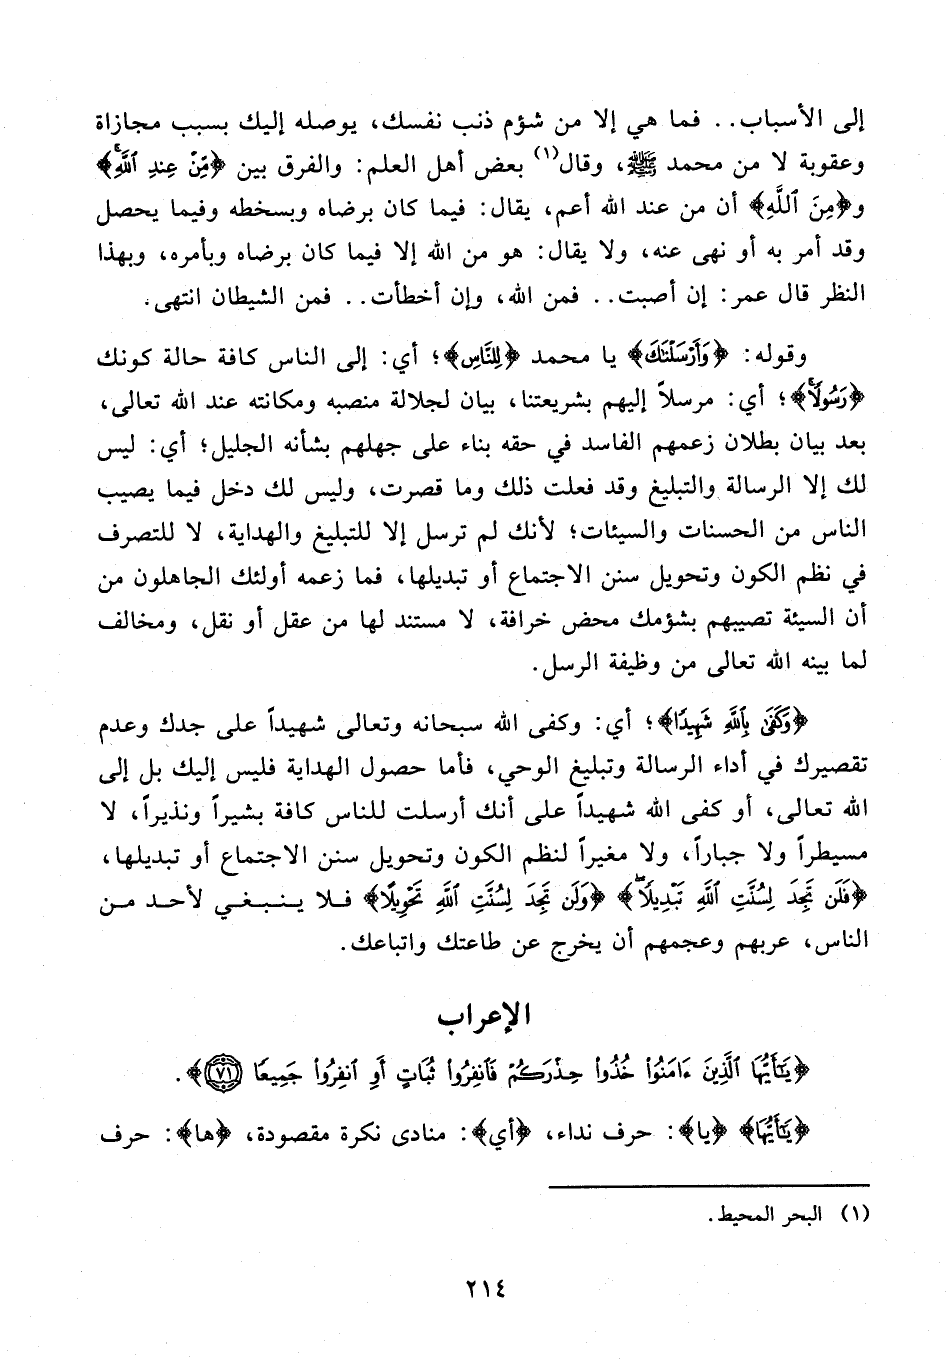 إلى الأسباب.. فما هي إلا من شؤم ذنب نفسك، يوصله إليك بسبب مجازاة
وعقوبة لا من محمد ﷺ، وقال(١) بعض أهل العلم: والفرق بين ﴿مِّنْ عِندِ ٱللَّهِ﴾
و﴿مِنَ ٱللَّهِ﴾ أن من عند الله أعم، يقال: فيما كان برضاه وبسخطه وفيما يحصل
وقد أمر به أو نهى عنه، ولا يقال: هو من الله إلا فيما كان برضاه وبأمره، وبهذا
النظر قال عمر: إن أصبت.. فمن الله، وإن أخطأت.. فمن الشيطان انتهى.
وقوله: ﴿وَأَرْسَلْنَٰكَ﴾ يا محمد ﴿لِلنَّاسِ﴾؛ أي: إلى الناس كافة حالة كونك
﴿رَسُولًا﴾؛ أي: مرسلاً إليهم بشريعتنا، بيان لجلالة منصبه ومكانته عند الله تعالى،
بعد بيان بطلان زعمهم الفاسد في حقه بناء على جهلهم بشأنه الجليل؛ أي: ليس
لك إلا الرسالة والتبليغ وقد فعلت ذلك وما قصرت، وليس لك دخل فيما يصيب
الناس من الحسنات والسيئات؛ لأنك لم ترسل إلا للتبليغ والهداية، لا للتصرف
في نظم الكون وتحويل سنن الاجتماع أو تبديلها، فما زعمه أولئك الجاهلون من
أن السيئة تصيبهم بشؤمك محض خرافة، لا مستند لها من عقل أو نقل، ومخالف
لما بينه الله تعالى من وظيفة الرسل.
﴿وَكَفَىٰ بِٱللَّهِ شَهِيدًا﴾؛ أي: وكفى الله سبحانه وتعالى شهيداً على جدك وعدم
تقصيرك في أداء الرسالة وتبليغ الوحي، فأما حصول الهداية فليس إليك بل إلى
الله تعالى، أو كفى الله شهيداً على أنك أرسلت للناس كافة بشيراً ونذيراً، لا
مسيطراً ولا جباراً، ولا مغيراً لنظم الكون وتحويل سنن الاجتماع أو تبديلها،
﴿فَلَن تَجِدَ لِسُنَّتِ ٱللَّهِ تَبْدِيلًاۖ﴾ ﴿وَلَن تَجِدَ لِسُنَّتِ ٱللَّهِ تَحْوِيلًا﴾ فلا ينبغي لأحد من
الناس، عربهم وعجمهم أن يخرج عن طاعتك واتباعك.
الإعراب
﴿يَٰٓأَيُّهَا ٱلَّذِينَ ءَامَنُوا۟ خُذُوا۟ حِذْرَكُمْ فَٱنفِرُوا۟ ثُبَاتٍ أَوِ ٱنفِرُوا۟ جَمِيعًا ٧١﴾.
﴿يَٰٓأَيُّهَا﴾ ﴿يا﴾: حرف نداء، ﴿أي﴾: منادى نكرة مقصودة، ﴿ها﴾: حرف
(١) البحر المحيط.
٢١٤